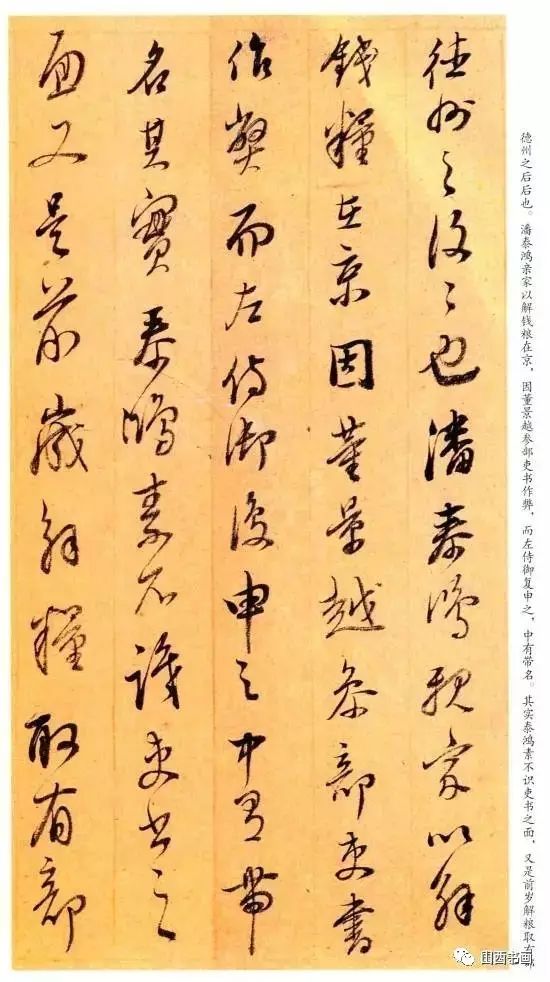 德州之後々也潘泰鴻親家以解
錢糧在京因董景越參部吏書
作弊而左侍御復申之中有帶
名其實泰鴻素不識吏書之
面又是前歲解糧取有部
德州之后后也。潘泰鸿亲家以解钱粮在京，因董景越参部吏书作弊，而左侍御复申之，中有带名。其实泰鸿素不识吏书之面，又是前岁解粮取有部
西书画